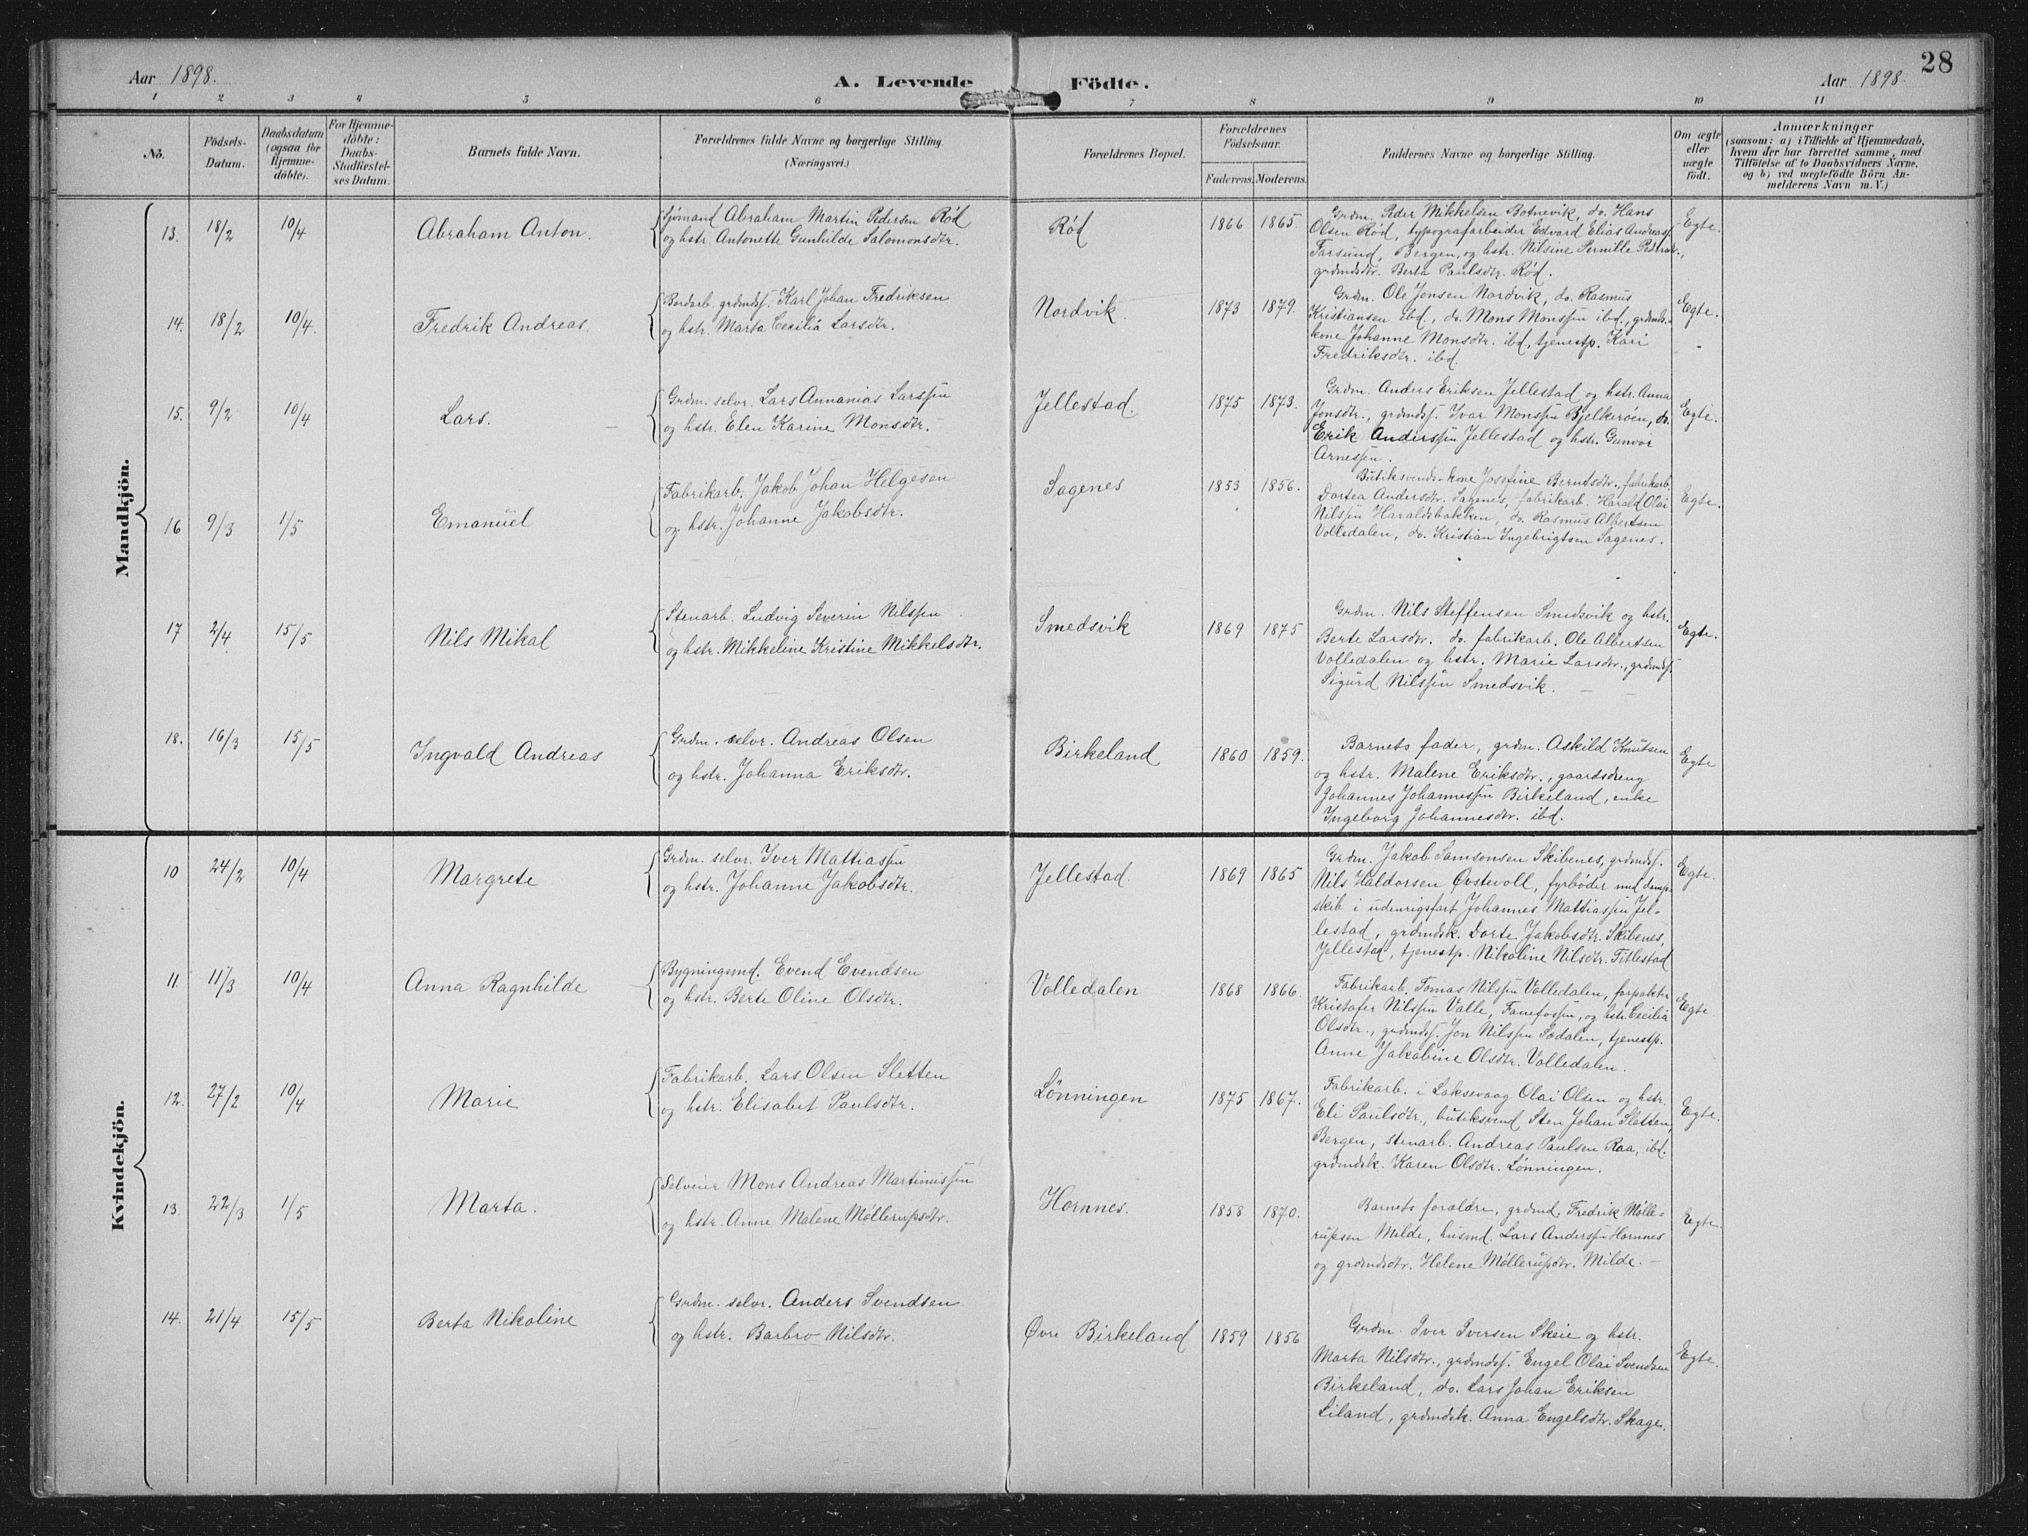 28
Aar 1898.
A. Levende Födte.
Aar 1898.
1 2 3 4 5 6 7 8 9 10 11
No.
Födsels-Datum.
Daabsdatum (ogsaa for Hjemmedöbte).
For Hjemmedöbte: Daabs-Stadfæstelses Datum.
Barnets fulde Navn.
Forældrenes fulde Navne og borgerlige Stilling.
(Næringsvei.)
Forældrenes Bopæl.
Forældrenes Födselsaar.
Faderens. Moderens.
Faddernes Navne og borgerlige Stilling.
Om ægte eller uægte födt.
Anmærkninger
(saasom: a) i Tilfælde af Hjemmedaab,
hvem der har forrettet samme, med
Tilföielse af to Daabsvidners Navne,
og b) ved uægtefödte Börn Anmelderens Navn m. V.)
Mandkjön.
13. 18/2 10/4 Abraham Anton.
Sjömand Abraham Martin Pedersen Rød
og hstr. Antonette Gunhilde Salomonsdtr.
Rød 1866 1865.
Grdm. Peder Mikkelsen Botnevik, do. Hans
Olsen Rød, typografarbeider Edvard Elias Andreas
Farsund, Bergen, og hstr. Nilsine Pernille Pedersdtr.,
grdmdtr. Berta Paulsdtr. Rød.
Egte.
14. 18/2 10/4. Fredrik Andreas.
Bordarb. grdmds. Karl Johan Fredriksen
og hstr. Marta Cecilia Larsdtr.
Nordvik. 1873 1879.
Grdm. Ole Jonsen Nordvik, do. Rasmus
Kristiansen ibd., do. Mons Monssen ibd., grdmds.
kone Johanne Monsdtr. ibd, tjenestp. Kari
Fredriksdtr. ibd.
Egte.
15. 9/2 10/4 Lars.
Grdm. selvr. Lars Annanias Larssen
og hstr. Elen Karine Monsdtr.
Jellestad. 1875 1873.
Grdm. Anders Eriksen Jellestad og hstr. Anna
Jonsdtr., grdmds. Ivar Monssen Bjelkerøen, do.
Erik Anderssen Jellestad og hstr. Gunvor
Arnessen.
Egte.
16 9/3 1/5 Emanuel
Fabrikarb. Jakob Johan Helgesen
og hstr. Johanne Jakobsdtr.
Sagenes 1853 1856.
Butiksvends kone Josefine Berntsdtr., fabrikarb.
Dortea Andersdtr. Sagenes, fabrikarb. Harald Olai
Nilssen Haraldsbakken, do. Rasmus Albertsen
Volledalen, do. Kristian Ingebrigtsen Sagenes.
Egte.
17 2/4 15/5 Nils Mikal
Stenarb. Ludvig Severin Nilssen
og hstr. Mikkeline Kristine Mikkelsdtr.
Smedsvik 1869 1875
Grdm. Nils Steffensen Smedsvik og hstr.
Berte Larsdtr. do. fabrikarb. Ole Albertsen
Volledalen og hstr. Marie Larsdtr., grdmds.
Sigurd Nilssen Smedsvik.
Egte.
18. 16/3 15/5 Ingvald Andreas
Grdm. selvr. Andreas Olsen
og hstr. Johanna Eriksdtr.
Birkeland 1860 1859.
Barnets fader, grdm. Askild Knutsen
og hstr. Malene Eriksdtr., gaardsdreng
Johannes Johannessen Birkeland, enke
Ingeborg Johannesdtr. ibd.
Egte
Kvindekjön.
10 24/2 10/4 Margrete
Grdm. selvr. Iver Mattiassen
og hstr. Johanne Jakobsdtr.
Jellestad 1869 1865
Grdm. Jakob Samsonsen Skibenes, grdmds.
Nils Haldorsen Øvstevoll, fyrbøder med damp-
skib i udenrigsfart Johannes Mattiassen Jel-
lestad, grdmdsk. Dorte Jakobsdtr. Skibenes,
Jellestad, tjenestp. Nikoline Nilsdtr. Titlestad
Egte.
11. 11/3 10/4 Anna Ragnhilde
Bygningsmd. Evend Evendsen
og hstr. Berte Oline Olsdtr.
Volledalen 1868 1866.
Fabrikarb. Tomas Nilssen Volledalen, forpakter
Kristofer Nilssen Valle, Fanefossen, og hstr. Cecilia
Olsdtr., grdmds. Jon Nilssen Sædalen, tjenestp.
Anne Jakobine Olsdtr. Volledalen.
Egte
12. 27/2 10/4 Marie
Fabrikarb. Lars Olsen Sletten
og hstr. Elisabet Paulsdtr.
Lønningen 1875 1867.
Fabrikarb. i Laksevaag Olai Olsen og hstr.
Eli Paulsdtr., butiksvend Sten Johan Sletten,
Bergen, stenarb. Andreas Paulsen Raa, ibd.
grdmdsk. Karen Olsdtr. Lønningen.
Egte.
13 22/3 1/5 Marta.
Selveier Mons Andreas Martinussen
og hstr. Anne Malene Møllerupsdtr.
Hornnes. 1858 1870.
Barnets forældre, grdmd. Fredrik Mølle-
rupsen Milde, husmd. Lars Anderssen Hornnes
og grdmdsdtr. Helene Møllerupsdtr. Milde.
Egte.
14. 21/4 15/5 Berta Nikoline
Grdm. selvr. Anders Svendsen
og hstr. Barbro Nilsdtr.
Øvre Birkeland 1859 1856
Grdm. Iver Iversen Skeie og hstr.
Marta Nilsdtr., grdmds. Engel Olai Svendsen
Birkeland, do. Lars Johan Eriksen
Liland, grdmdsk. Anna Engelsdtr. Skage.
Egte.